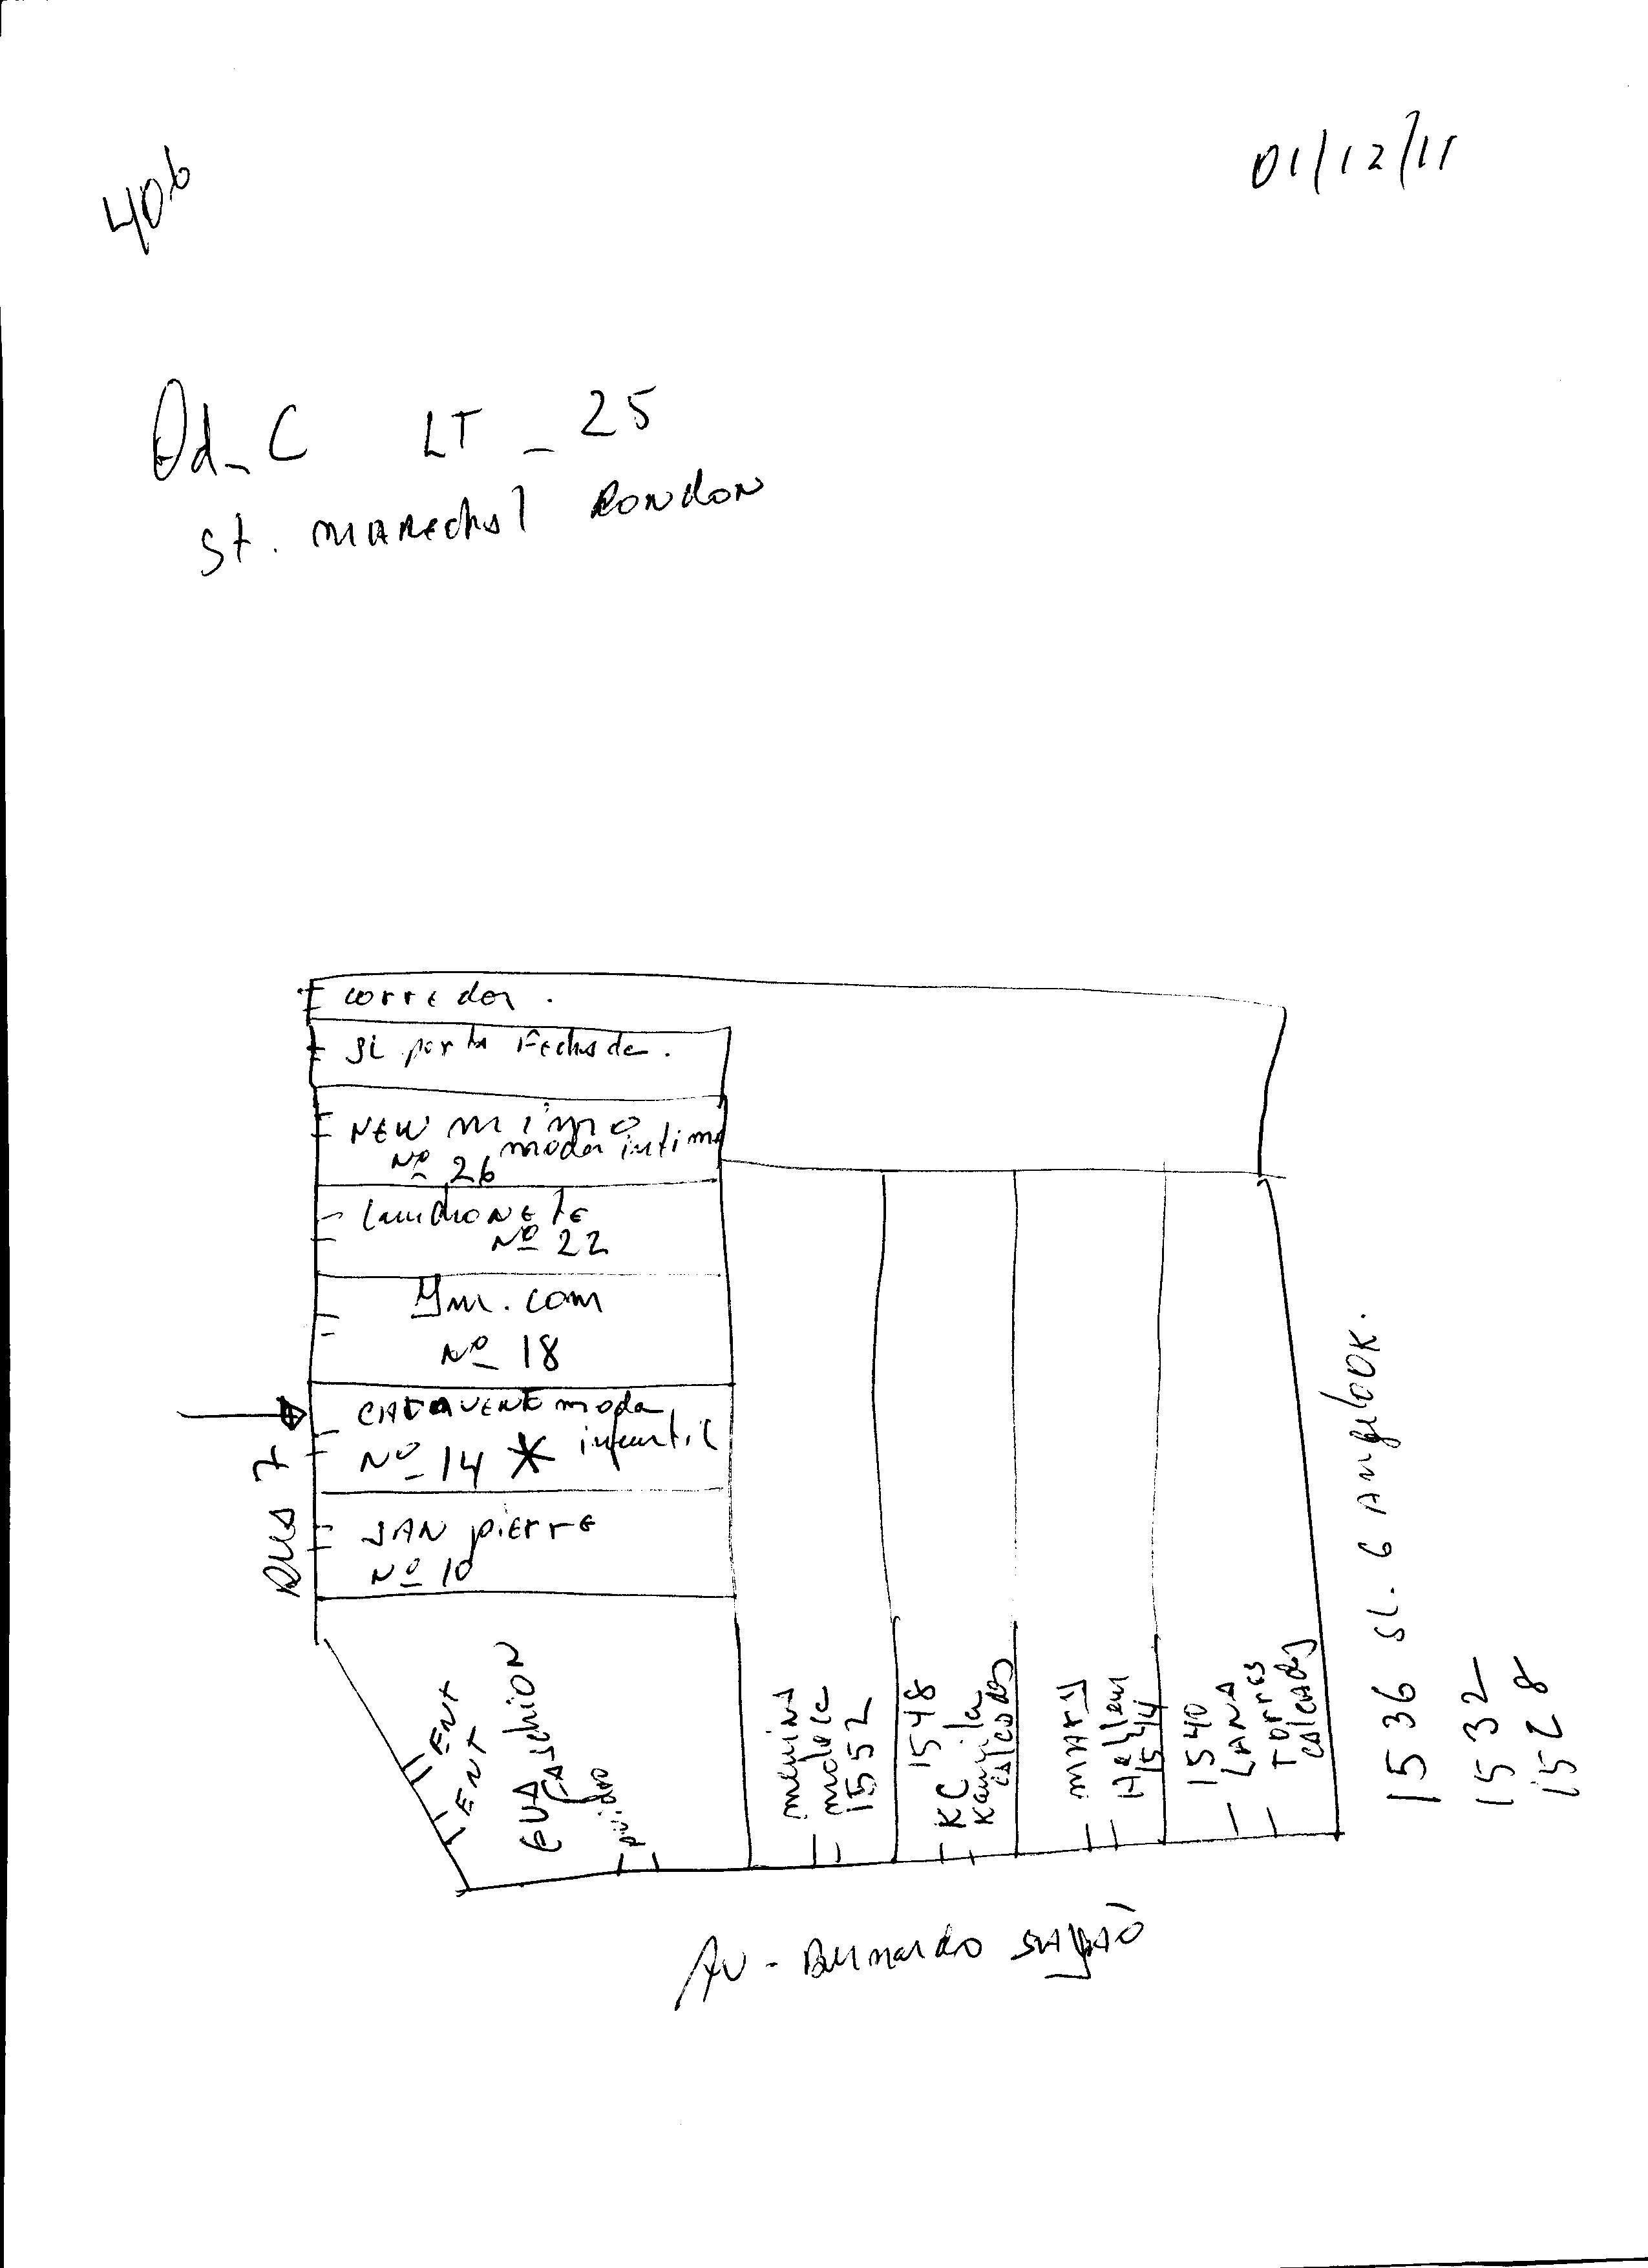 406
01/12/11
Qd_ C LT _ 25
St. MARECHAL RONDON
corredor.
SL porta Fechada.
NEW mimo
moda intima
Nº 26
LanchoNETE
Nº 22
Ym.com
Nº 18
CATAVENTO moda
infantil
Nº 14 *
JAN pierre
Nº 10
RUA 7
ENT
ENT
EVA FASCHION
menina
moleca
1552
1548
KC
Kamila
calcados
MARY
Hellen
1544
1540
LANA
Torres
calcados
1536 SL. 6 Angelook.
1532
1528
AV - Bernardo SAYÃO